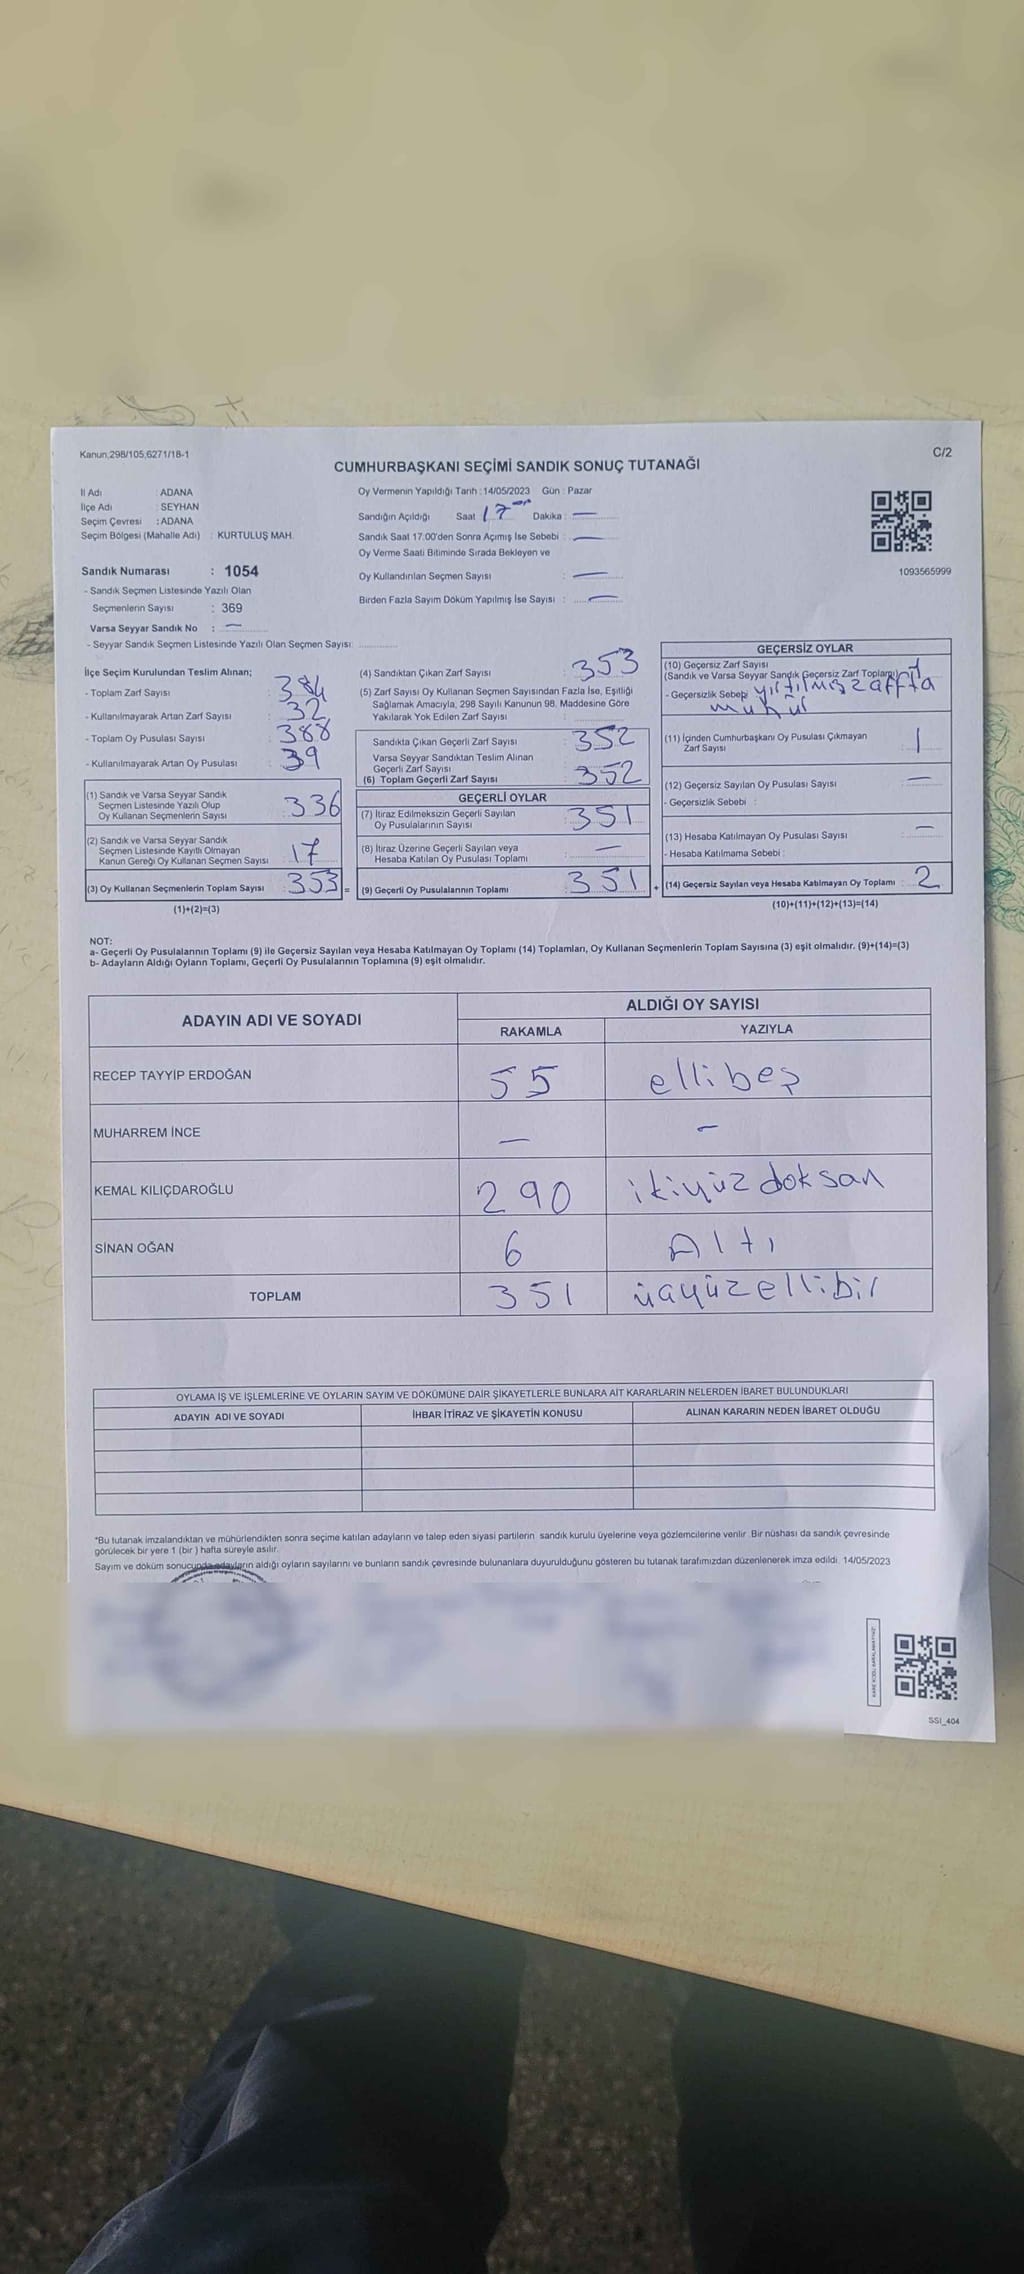 Kanun,298/105,6271/18-1
C/2
CUMHURBAŞKANI SEÇİMİ SANDIK SONUÇ TUTANAĞI
İl Adı : ADANA
İlçe Adı : SEYHAN
Seçim Çevresi : ADANA
Seçim Bölgesi (Mahalle Adı) : KURTULUŞ MAH.
Sandık Numarası : 1054
- Sandık Seçmen Listesinde Yazılı Olan
Seçmenlerin Sayısı : 369
Varsa Seyyar Sandık No : —
- Seyyar Sandık Seçmen Listesinde Yazılı Olan Seçmen Sayısı:
Oy Vermenin Yapıldığı Tarih : 14/05/2023 Gün : Pazar
Sandığın Açıldığı Saat 17 Dakika : —
Sandık Saat 17.00'den Sonra Açımış İse Sebebi : —
Oy Verme Saati Bitiminde Sırada Bekleyen ve
Oy Kullandırılan Seçmen Sayısı : —
Birden Fazla Sayım Döküm Yapılmış İse Sayısı : —
1093565999
İlçe Seçim Kurulundan Teslim Alınan;
- Toplam Zarf Sayısı : 384
- Kullanılmayarak Artan Zarf Sayısı : 32
- Toplam Oy Pusulası Sayısı : 388
- Kullanılmayarak Artan Oy Pusulası : 39
(1) Sandık ve Varsa Seyyar Sandık
Seçmen Listesinde Yazılı Olup
Oy Kullanan Seçmenlerin Sayısı 336
(2) Sandık ve Varsa Seyyar Sandık
Seçmen Listesinde Kayıtlı Olmayan
Kanun Gereği Oy Kullanan Seçmen Sayısı 17
(3) Oy Kullanan Seçmenlerin Toplam Sayısı 353 =
(1)+(2)=(3)
(4) Sandıktan Çıkan Zarf Sayısı : 353
(5) Zarf Sayısı Oy Kullanan Seçmen Sayısından Fazla İse, Eşitliği
Sağlamak Amacıyla, 298 Sayılı Kanunun 98. Maddesine Göre
Yakılarak Yok Edilen Zarf Sayısı :
Sandıkta Çıkan Geçerli Zarf Sayısı : 352
Varsa Seyyar Sandıktan Teslim Alınan
Geçerli Zarf Sayısı
(6) Toplam Geçerli Zarf Sayısı : 352
GEÇERLİ OYLAR
(7) İtiraz Edilmeksizin Geçerli Sayılan
Oy Pusulalarının Sayısı : 351
(8) İtiraz Üzerine Geçerli Sayılan veya
Hesaba Katılan Oy Pusulası Toplamı : —
(9) Geçerli Oy Pusulalarının Toplamı : 351 +
GEÇERSİZ OYLAR
(10) Geçersiz Zarf Sayısı
(Sandık ve Varsa Seyyar Sandık Geçersiz Zarf Toplamı) : 1
- Geçersizlik Sebebi yırtılmış zaffta
mühür
(11) İçinden Cumhurbaşkanı Oy Pusulası Çıkmayan
Zarf Sayısı : 1
(12) Geçersiz Sayılan Oy Pusulası Sayısı : —
- Geçersizlik Sebebi :
(13) Hesaba Katılmayan Oy Pusulası Sayısı : —
- Hesaba Katılmama Sebebi :
(14) Geçersiz Sayılan veya Hesaba Katılmayan Oy Toplamı : 2
(10)+(11)+(12)+(13)=(14)
NOT:
a- Geçerli Oy Pusulalarının Toplamı (9) ile Geçersiz Sayılan veya Hesaba Katılmayan Oy Toplamı (14) Toplamları, Oy Kullanan Seçmenlerin Toplam Sayısına (3) eşit olmalıdır. (9)+(14)=(3)
b- Adayların Aldığı Oyların Toplamı, Geçerli Oy Pusulalarının Toplamına (9) eşit olmalıdır.
ADAYIN ADI VE SOYADI
ALDIĞI OY SAYISI
RAKAMLA YAZIYLA
RECEP TAYYİP ERDOĞAN 55 ellibeş
MUHARREM İNCE — —
KEMAL KILIÇDAROĞLU 290 ikiyüz doksan
SİNAN OĞAN 6 Altı
TOPLAM 351 üçyüzellibir
OYLAMA İŞ VE İŞLEMLERİNE VE OYLARIN SAYIM VE DÖKÜMÜNE DAİR ŞİKAYETLERLE BUNLARA AİT KARARLARIN NELERDEN İBARET BULUNDUKLARI
ADAYIN ADI VE SOYADI İHBAR İTİRAZ VE ŞİKAYETİN KONUSU ALINAN KARARIN NEDEN İBARET OLDUĞU
*Bu tutanak imzalandıktan ve mühürlendikten sonra seçime katılan adayların ve talep eden siyasi partilerin sandık kurulu üyelerine veya gözlemcilerine verilir. Bir nüshası da sandık çevresinde
görülecek bir yere 1 (bir ) hafta süreyle asılır.
Sayım ve döküm sonucunda adayların aldığı oyların sayılarını ve bunların sandık çevresinde bulunanlara duyurulduğunu gösteren bu tutanak tarafımızdan düzenlenerek imza edildi. 14/05/2023
SSI_404